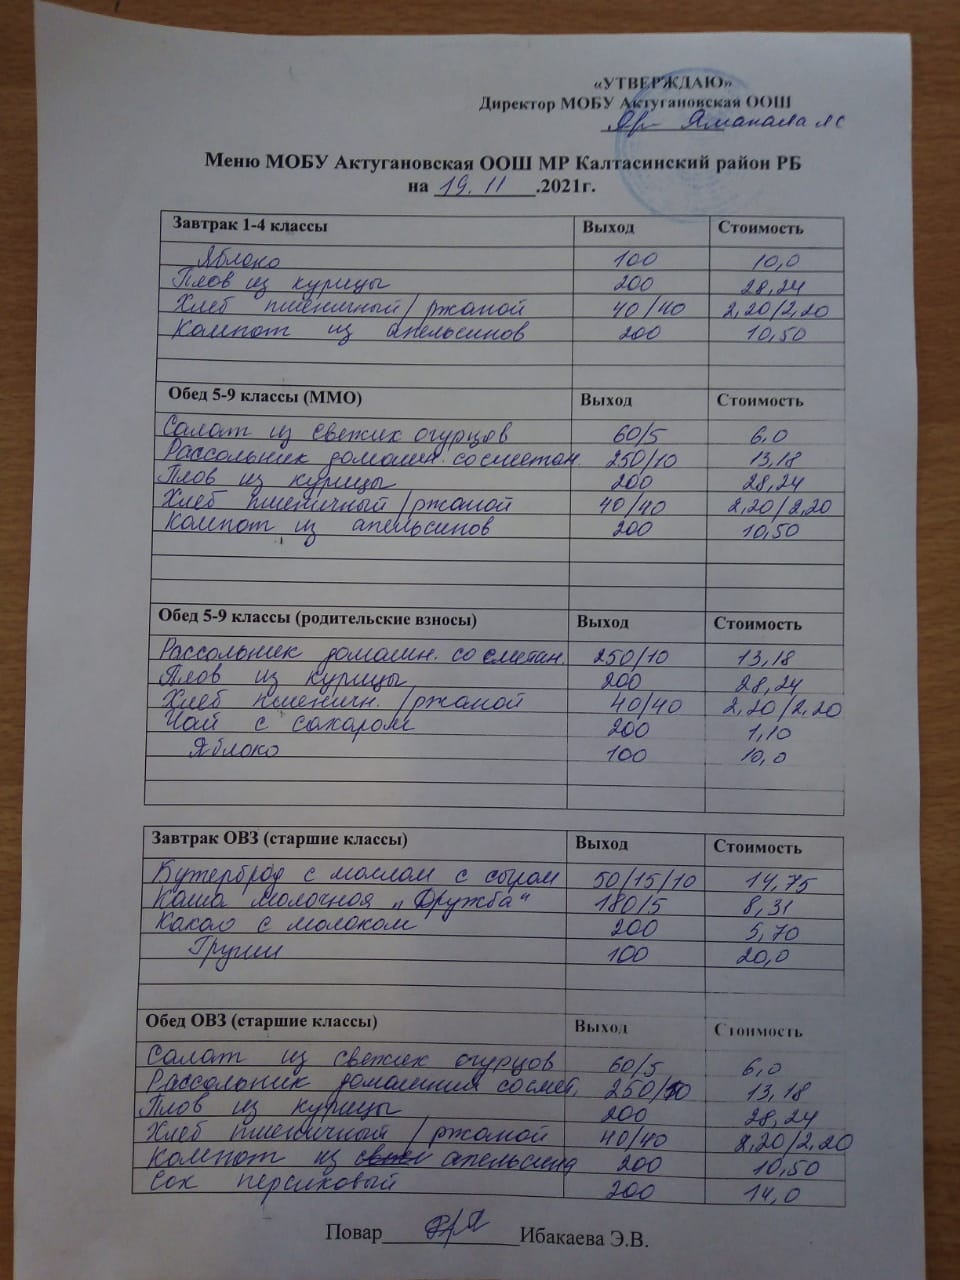 «УТВЕРЖДАЮ»
Директор МОБУ Актугановская ООШ
Яманаева ЛС
Меню МОБУ Актугановская ООШ МР Калтасинский район РБ
на 19.11.2021г.
Завтрак 1-4 классы Выход Стоимость
Яблоко 100 10,0
Плов из курицы 200 28,24
Хлеб пшеничный/ржаной 40/40 2,20/2,20
Компот из апельсинов 200 10,50
Обед 5-9 классы (ММО) Выход Стоимость
Салат из свежих огурцов 60/5 6,0
Рассольник домашн. со сметан. 250/10 13,18
Плов из курицы 200 28,24
Хлеб пшеничный/ржаной 40/40 2,20/2,20
Компот из апельсинов 200 10,50
Обед 5-9 классы (родительские взносы) Выход Стоимость
Рассольник домашн. со сметан. 250/10 13,18
Плов из курицы 200 28,24
Хлеб пшеничн. /ржаной 40/40 2,20/2,20
Чай с сахаром 200 1,10
Яблоко 100 10,0
Завтрак ОВЗ (старшие классы) Выход Стоимость
Бутерброд с маслом с сыром 50/15/10 14,75
Каша молочная „Дружба“ 180/5 8,31
Какао с молоком 200 5,70
Груши 100 20,0
Обед ОВЗ (старшие классы) Выход Стоимость
Салат из свежих огурцов 60/5 6,0
Рассольник домашний со смет. 250/10 13,18
Плов из курицы 200 28,24
Хлеб пшеничный /ржаной 40/40 2,20/2,20
Компот из апельсина 200 10,50
Сок персиковый 200 14,0
Повар Ибакаева Э.В.